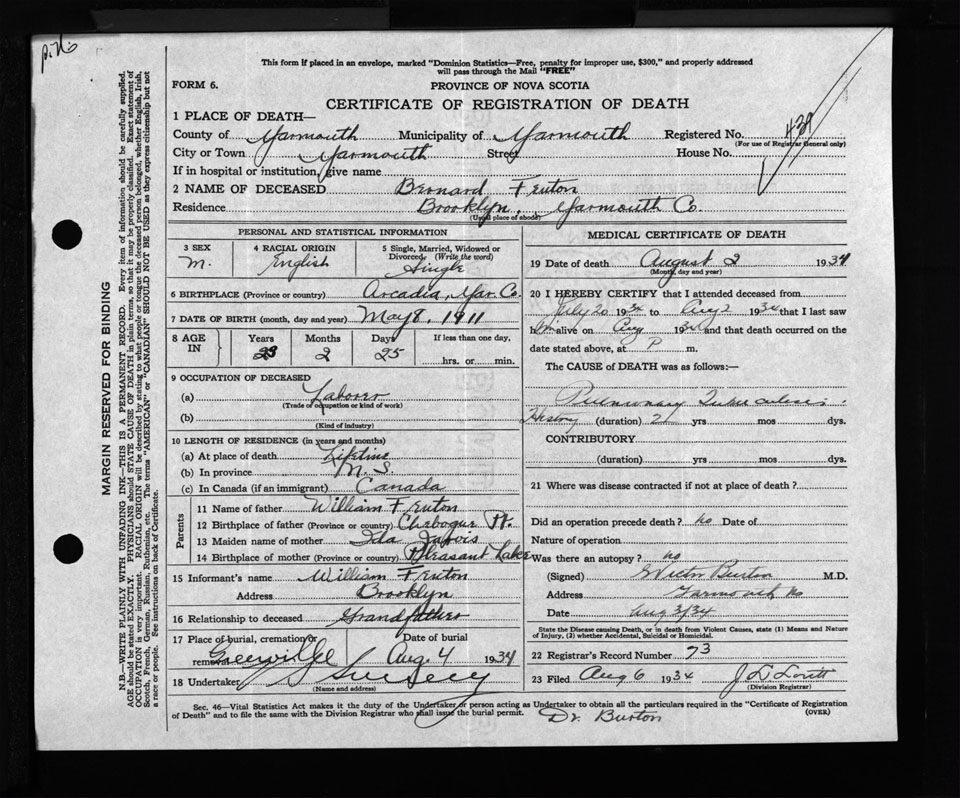 p. no
This form if placed in an envelope, marked "Dominion Statistics—Free, penalty for improper use, $300," and properly addressed
will pass through the Mail "FREE"
FORM 6.
PROVINCE OF NOVA SCOTIA
CERTIFICATE OF REGISTRATION OF DEATH
1 PLACE OF DEATH—
County of Yarmouth Municipality of Yarmouth Registered No. 439
(For use of Registrar General only)
City or Town Yarmouth Street House No.
If in hospital or institution, give name
2 NAME OF DECEASED Bernard Fenton
Residence Brooklyn, Yarmouth Co.
(Usual place of abode)
PERSONAL AND STATISTICAL INFORMATION
3 SEX
M.
4 RACIAL ORIGIN
English
5 Single, Married, Widowed or
Divorced (Write the word)
Single
6 BIRTHPLACE (Province or country) Arcadia, Yar. Co.
7 DATE OF BIRTH (month, day and year) May 8, 1911
8 AGE
IN
Years
23
Months
2
Days
25
If less than one day,
hrs. or min.
9 OCCUPATION OF DECEASED
(a) Laborer
(Trade or occupation or kind of work)
(b)
(Kind of industry)
10 LENGTH OF RESIDENCE (in years and months)
(a) At place of death Lifetime
(b) In province N. S.
(c) In Canada (if an immigrant) Canada
Parents
11 Name of father William Fenton
12 Birthplace of father (Province or country) Chebogue Pt.
13 Maiden name of mother Ida Jarvis
14 Birthplace of mother (Province or country) Pleasant Lake
15 Informant's name William Fenton
Address Brooklyn
16 Relationship to deceased Grandfather
17 Place of burial, cremation or
removal
Date of burial
Aug. 4 1934
18 Undertaker J S Sweeny
(Name and address)
MEDICAL CERTIFICATE OF DEATH
19 Date of death August 2 1934
(Month, day and year)
20 I HEREBY CERTIFY that I attended deceased from
July 20 1934 to Aug 2 1934 that I last saw
him alive on Aug 1934 and that death occurred on the
date stated above, at P m.
The CAUSE of DEATH was as follows:—
Pulmonary Tuberculosis
History (duration) 2 yrs mos dys.
CONTRIBUTORY
(duration) yrs mos dys.
21 Where was disease contracted if not at place of death?
Did an operation precede death? no Date of
Nature of operation
Was there an autopsy? no
(Signed) G Victor Burton M.D.
Address Yarmouth NS
Date Aug 3/34
State the Disease causing Death, or in death from Violent Causes, state (1) Means and Nature
of Injury, (2) whether Accidental, Suicidal or Homicidal.
22 Registrar's Record Number 73
23 Filed Aug 6 1934
(Division Registrar)
Sec. 46—Vital Statistics Act makes it the duty of the Undertaker or person acting as Undertaker to obtain all the particulars required in the "Certificate of Registration
of Death" and to file the same with the Division Registrar who shall issue the burial permit.
(OVER)
Dr. Burton
MARGIN RESERVED FOR BINDING
N.B.—WRITE PLAINLY WITH UNFADING INK—THIS IS A PERMANENT RECORD. Every item of information should be carefully supplied.
AGE should be stated EXACTLY. PHYSICIANS should STATE CAUSE OF DEATH in plain terms, so that it may be properly classified. Exact statement of
OCCUPATION is very important. RACIAL ORIGIN will be described by stating to what people or tongue the deceased person belonged, whether English, Irish,
Scotch, French, German, Russian, Ruthenian, etc. The terms "AMERICAN" or "CANADIAN" SHOULD NOT BE USED as they express citizenship but not
a race or people. See instructions on back of Certificate.